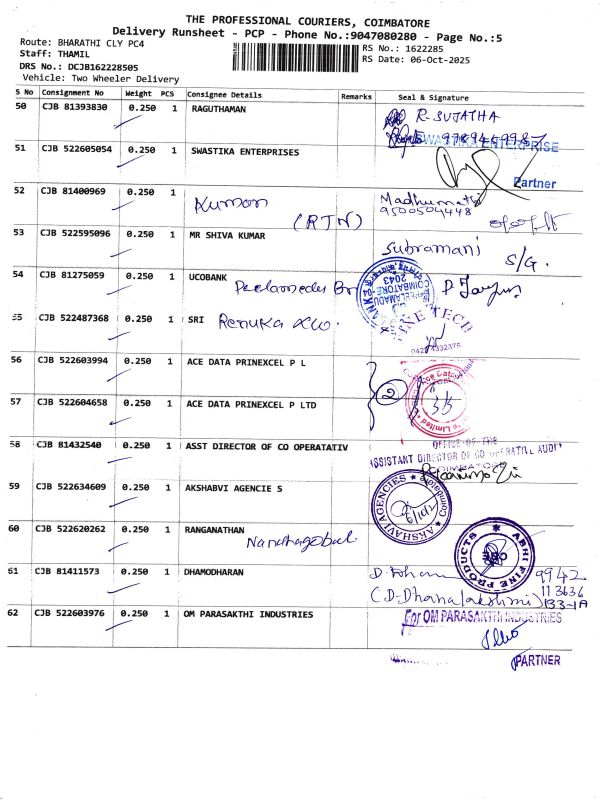 THE PROFESSIONAL COURIERS, COIMBATORE
Delivery Runsheet - PCP - Phone No.:9047080280 - Page No.:5
Route: BHARATHI CLY PC4
RS No.: 1622285
Staff: THAMIL
RS Date: 06-Oct-2025
DRS No.: DCJB162228505
Vehicle: Two Wheeler Delivery
S No Consignment No Weight PCS Consignee Details Remarks Seal & Signature
50 CJB 81393830 0.250 1 RAGUTHAMAN
R. SUJATHA
51 CJB 522605054 0.250 1 SWASTIKA ENTERPRISES
SWASTIKA ENTERPRISE
Partner
52 CJB 81400969 0.250 1
Kumar
(RTN)
Madhumathi
9500504448
53 CJB 522595096 0.250 1 MR SHIVA KUMAR
Subramani S/G.
54 CJB 81275059 0.250 1 UCOBANK
Peelamedu Br
PEELAMEDU
COIMBATORE - 04
2043
55 CJB 522487368 0.250 1 SRI
Renuka
FINE TECH
0422 4332375
56 CJB 522603994 0.250 1 ACE DATA PRINEXCEL P L
2
57 CJB 522604658 0.250 1 ACE DATA PRINEXCEL P LTD
Ace Data
Limited
58 CJB 81432540 0.250 1 ASST DIRECTOR OF CO OPERATATIV
OFFICE OF THE
ASSISTANT DIRECTOR OF CO OPERATIVE AUDIT
COIMBATORE
59 CJB 522634609 0.250 1 AKSHABVI AGENCIE S
AKSHAVI AGENCIES
Coimbatore
60 CJB 522620262 0.250 1 RANGANATHAN
Nandhagobal
ABHI FINE PRODUCTS
61 CJB 81411573 0.250 1 DHAMODHARAN
9942
113636
(D. Dhanalakshmi) 133-1A
62 CJB 522603976 0.250 1 OM PARASAKTHI INDUSTRIES
For OM PARASAKTHI INDUSTRIES
PARTNER